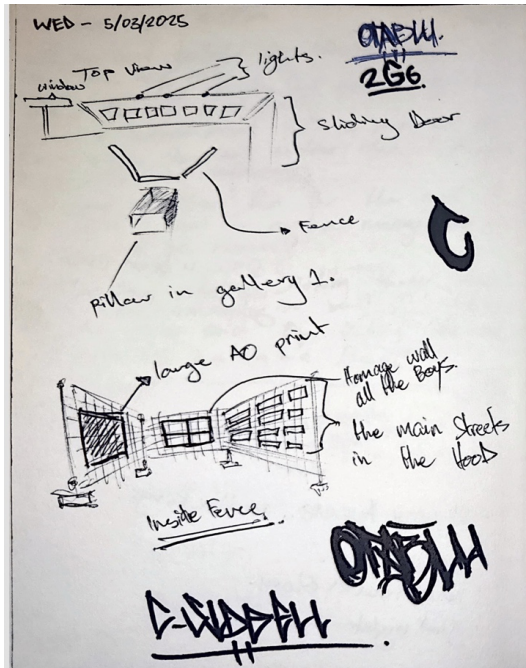 WED - 5/03/2025
OTABLU.
2G6
Top view
lights.
window
Sliding Door
Fence
pillar in gallery 1.
large AO print
Homage wall
all the Boys.
the main Streets
in the HooD
Inside Fence.